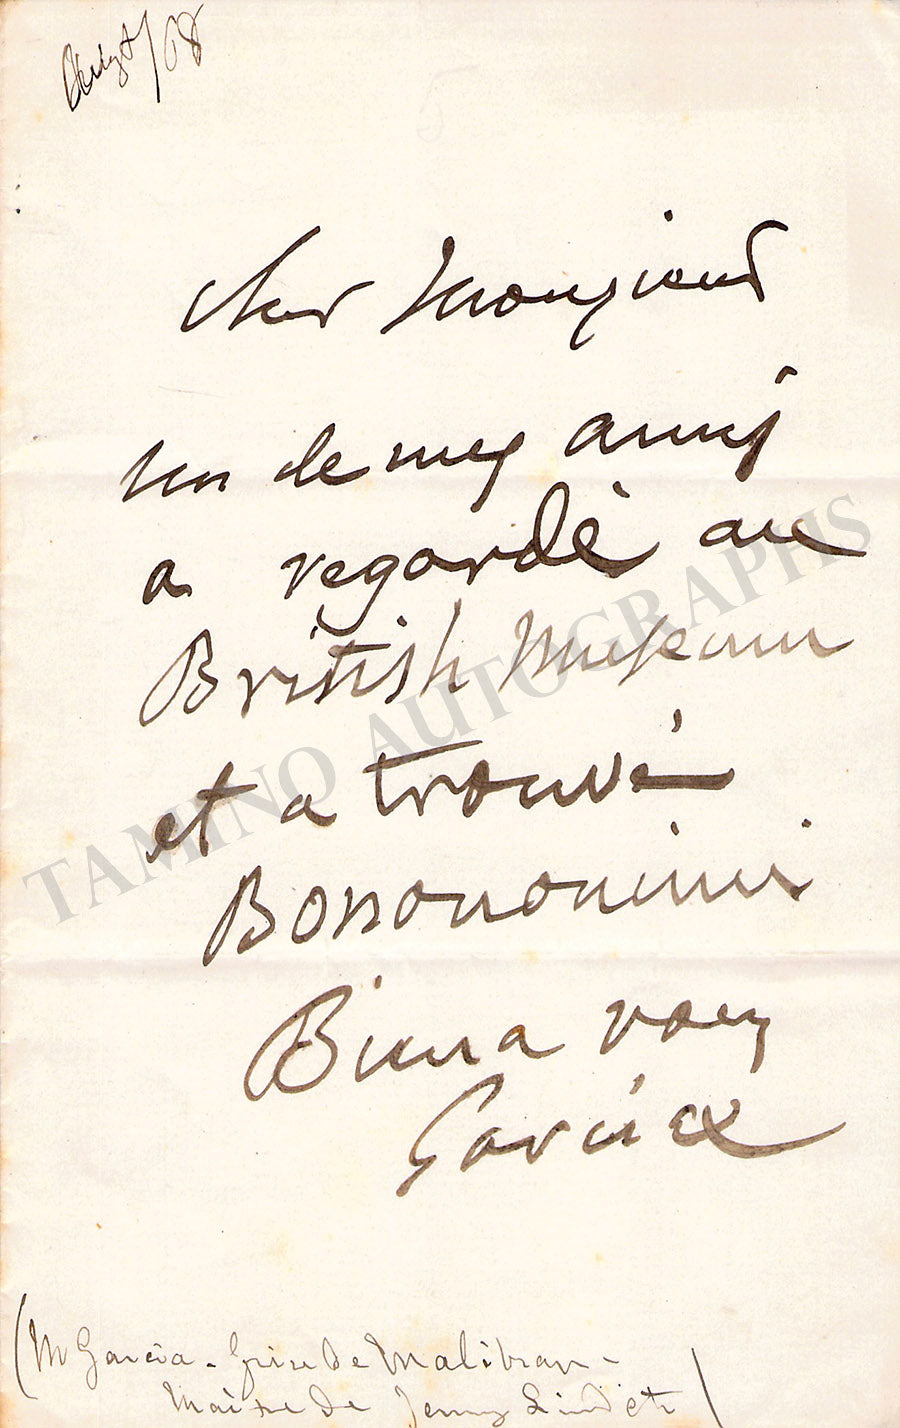 Augst/68
Cher Monsieur
un de mes amis
a regardé au
British Museum
et a trouvé
Bononcini
Bien a vous
Garcia
TAMINO AUTOGRAPHS
(M Garcia - frère de Malibran -
Maître de Jenny Lind etc)